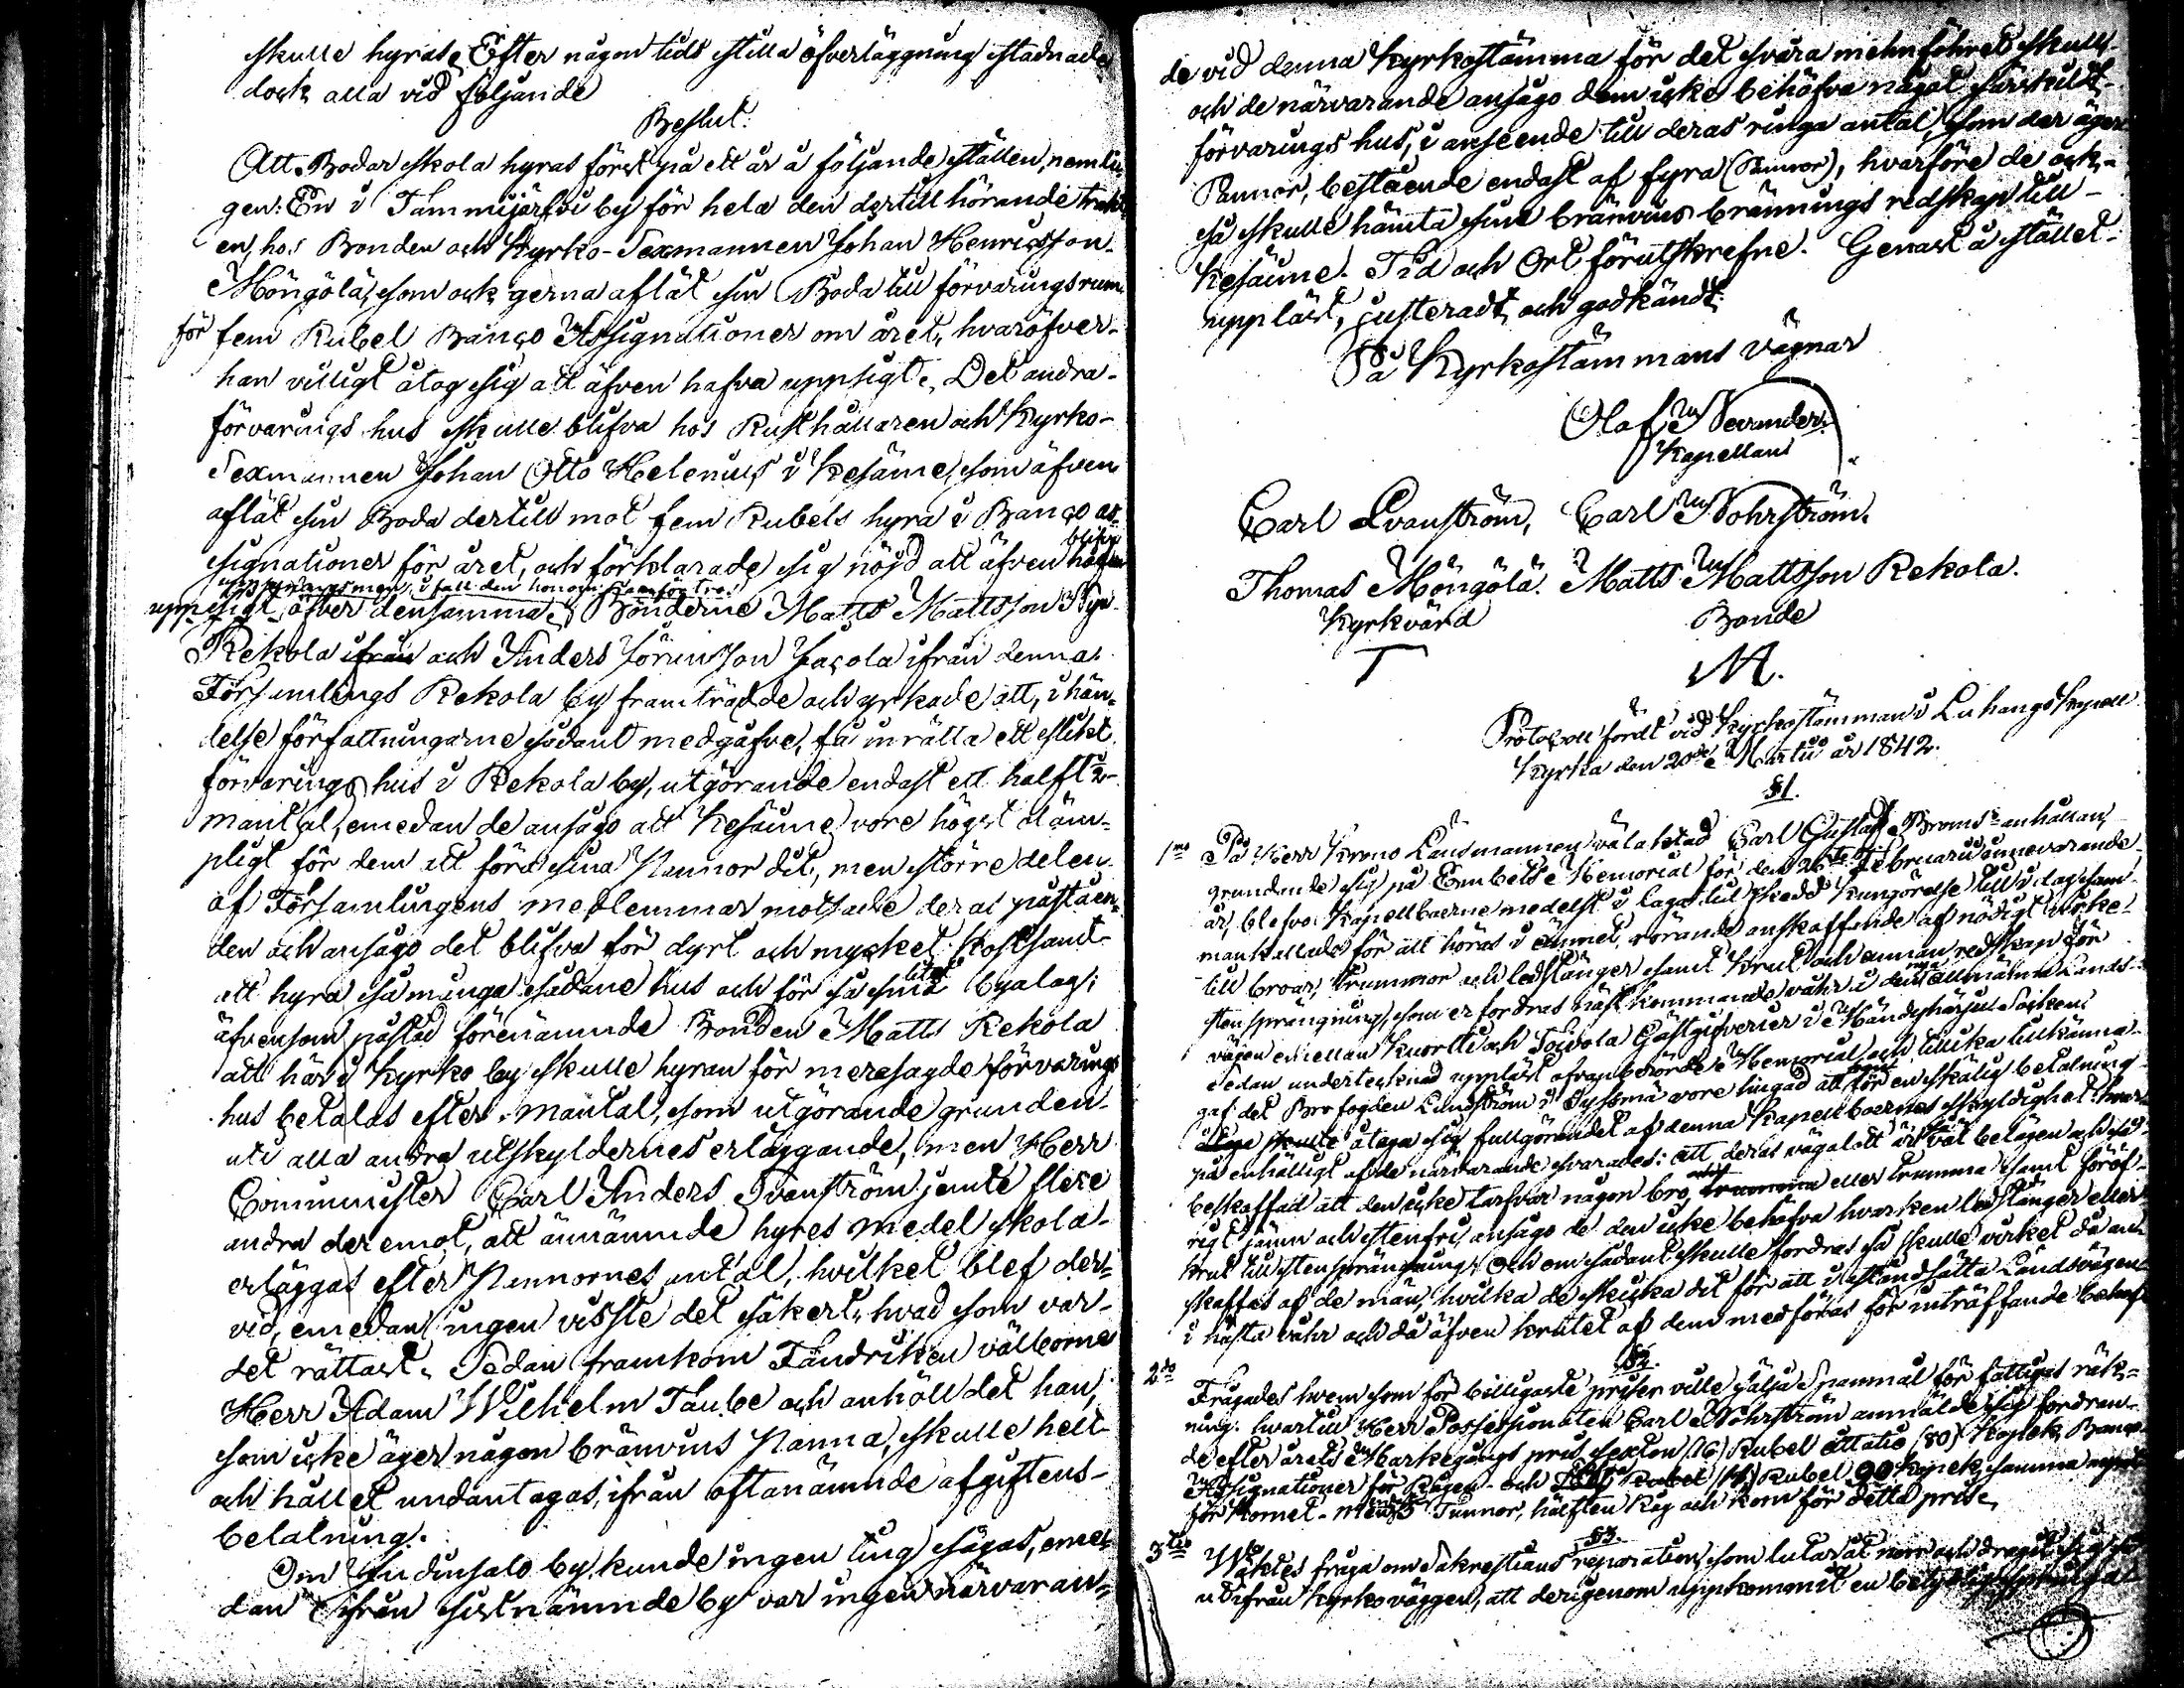 skulle hyras. Efter någon tids stilla öfverläggning stadnade
dock alla vid följande
Beslut:
Att Bodar skola hyras först på ett år å följande ställen, nemli-
gen: En i Tammijärfvi by för hela den dertill hörande trakt
en, hos Bonden och Kyrko-Sexmannen Johan Henricsson
Möngölä, som ock gerna aflät sin Boda till förvaringsrum
för fem Rubel Banco Assignationer om året, hvaröfver
han villigt åtog sig att äfven hafva uppsigt. Det andra
förvarings hus skulle blifva hos Rusthållaren och Kyrko-
Sexmannen Johan Otto Helenius i Kesäine, som äfven
aflät sin Boda dertill mot fem Rubels hyra i Banco as-
signationer för året, och förklarade sig nöjd att äfven blifva
uppsyningsman, i fall den honom
uppsigt öfver densamma. Bönderne Matts Mattsson
Rekola ifrån och Anders Jöransson Jacola ifrån denna
Församlings Rekola by framträdde och yrkade att, i hän-
delse författningarne sådant medgåfve, få inrätta ett slikt
förvarings hus i Rekola by, utgörande endast ett halft 1/2
mantal, emedan de ansågo att Kesäine vore högst oläm-
pligt för dem att föra sina Pannor dit, men större delen
af Församlingens medlemmar motsade deras påståen-
den och ansågo det blifva för dyrt och mycket kostsamt
att hyra så många sådane hus och för så små byalag;
äfvensom påstod förenämnde Bonden Matts Rekola
att här i Kyrko by skulle hyran för meresagde förvarings
hus betalas efter mantal, som utgörande grunden
uti alla andra utskyldernes erläggande, men Herr
Comminister Carl Anders Svanström jemte flere
andra deremot, att ännämnde hyres medel skola
erläggas efter Pannornes antal, hvilket blef der-
vid, emedan ingen visste det säkert, hvad som var
det rättast. Sedan framkom Fändriken välborne
Herr Adam Wilhelm Taube och anhöll det han,
som icke äger någon bränvins Panna, skulle helt
och hållet undantagas, ifrån oftanämnde afgiftens
betalning.
Om Judinsalo by kunde ingen ting sägas, eme-
dan ifrån sistnämnde by var ingen närvaran-
de vid denna Kyrkostämma för det svåra menföhret skull
och de närvarande ansågo dem icke behöfva något särskildt
förvarings hus, i anseende till deras ringa antal, som der äger
Pannor, bestående endast af fyra (Pannor), hvarföre de ock
så skulle hämta sine bränvins brännings redskap till
Kesäine. Tid och Ort förutskrefne. Genast å stället
uppläst, justeradt och godkändt.
På Kyrkostämmans vägnar
Olof
Kapellans
Carl Svanström, Carl Nohrström.
Thomas Möngölä. Matts Mattsson Rekola.
Kyrkvärd Bonde
T M.
Protocoll fördt vid Kyrkostämman i Luhango Kapell
Kyrka den 20de Martii år 1842.
§1.
1mo På Herr Krono Länsmannen välaktad Carl Gustaf Broms anhållan,
grundande sig på Embets Memorial för den 26te Februarii innevarande
år, blefvo Kapellboerne medelst i laga tid skedd kungörelse till i dag sam-
mankallade för att höras i ämnet, rörande anskaffande af nödigt virke
till broar, trummor och ledstänger samt krut och annan redskap för
stensprängning, som erfordras nästkommande våhr i den nya allmänna Lands-
vägen emellan Kuortti och Toivola Gästgifverier i Mändyharju Socken.
Sedan undertecknad uppläst ofvanberörde Memorial och tillika tillkänna
gaf det Brofogden Lindström i Sysmä vore hugad att emot en skälig betalning
skulle åtaga sig fullgörandet af denna Kapellboernes skyldighet hvar-
på enhälligt af de närvarande svarades: att deras vägalott är så väl belägen och så
beskaffad att den icke tarfvar någon bro, eller trumma samt föröf-
rigt jämn och stenfri, ansågo de den icke behöfva hvarken ledstänger eller
krut till stensprängning. Och om sådant skulle fordras så skulle virket då an-
skaffas af de män, hvilka de skicka dit för att iståndsätta Landsvägen
i nästa våhr och då äfven krutet af dem medföras för inträffande behof.
§2.
2do Frågades hvem som för billigaste priser ville sälja Spanmål för fattiges räk-
ning. hvartill Herr Possessionaten Carl Nohrström anmälde sig fordran-
de efter årets Markegångs pris, sexton (16) Rubel åttatio (80) Kopek Banco
Assignationer för Rågen och Rubel 90 kopek, samma
för Kornet. Tunnor, hälften Råg och korn för detta pris.
§3.
3tio Wäktes fråga om Sakrestians reparation, som lutar åt norr och dragit sig
ut ifrån Kyrkoväggen, att derigenom uppkommit en betydlig